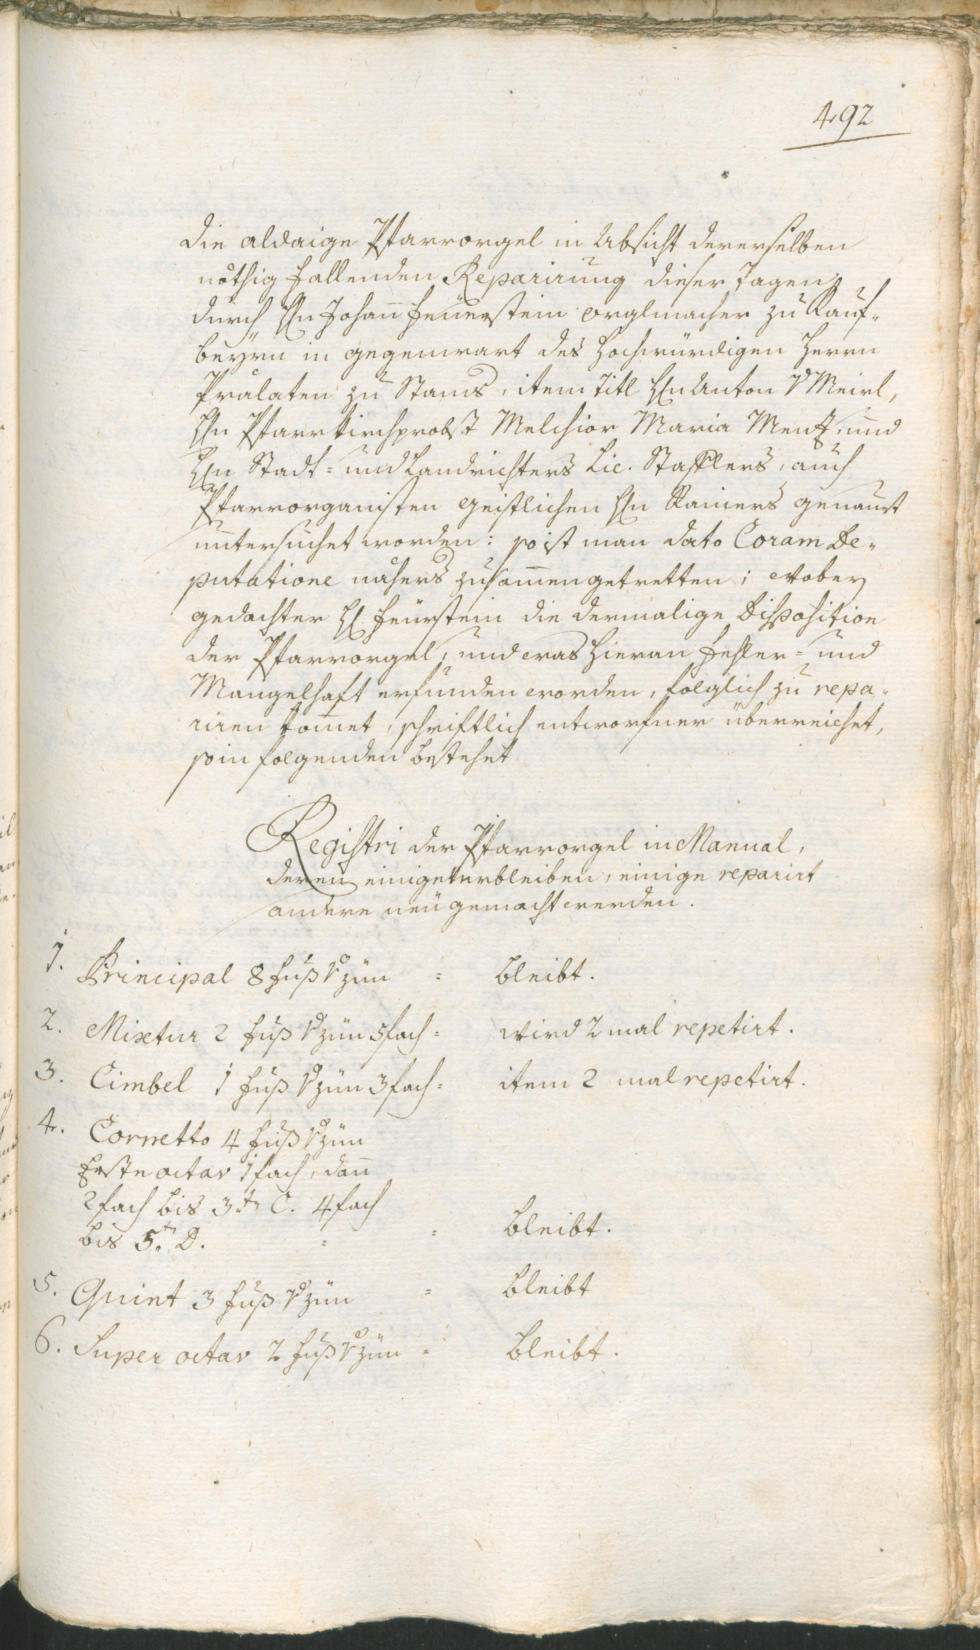 492
die aldaige Pfarrorgel in Absicht dererselben
nöthig fallenden Reparirung dieser Tagen
durch Hn Johann Feuerstein Orglmacher zu Kauf-
beyrn in gegenwart des Hochwürdigen Herrn
Prälaten zu Stams, item Titl Hn Anton v Meirl,
Hn Pfarrkirchprobst Melchior Maria Mentz, und
Hn Stadt- und Landrichters Lic. Stafflers, auch
Pfarrorganisten geistlichen Hn Rainers genauist
untersuchet worden: so ist man dato Coram De-
putatione nähers zusammengetretten; wobey
gedachter H Feurstein die dermalige Disposition
der Pfarrorgel, und was hieran Fehler- und
Mangelhaft erfunden worden, folglich zu repa-
riren kommet, schriftlich entworfner überreichet,
so in folgenden bestehet
Registri der Pfarrorgel in Manual,
deren einige verbleiben, einige reparirt
andere neu gemacht werden.
1. Principal 8 Fuß v zün = bleibt.
2. Mixtur 2 Fuß v zün 5fach = wird 2 mal repetirt.
3. Cimbel 1 Fuß v zün 3fach = item 2 mal repetirt.
4. Cornetto 4 Fuß v zün
Erste octav 1fach, dann
2fach bis 3.tn C. 4fach
bis 5.tn D. = = bleibt.
5. Quint 3 Fuß v zün = bleibt
6. Super octav 2 Fuß v zün = bleibt.